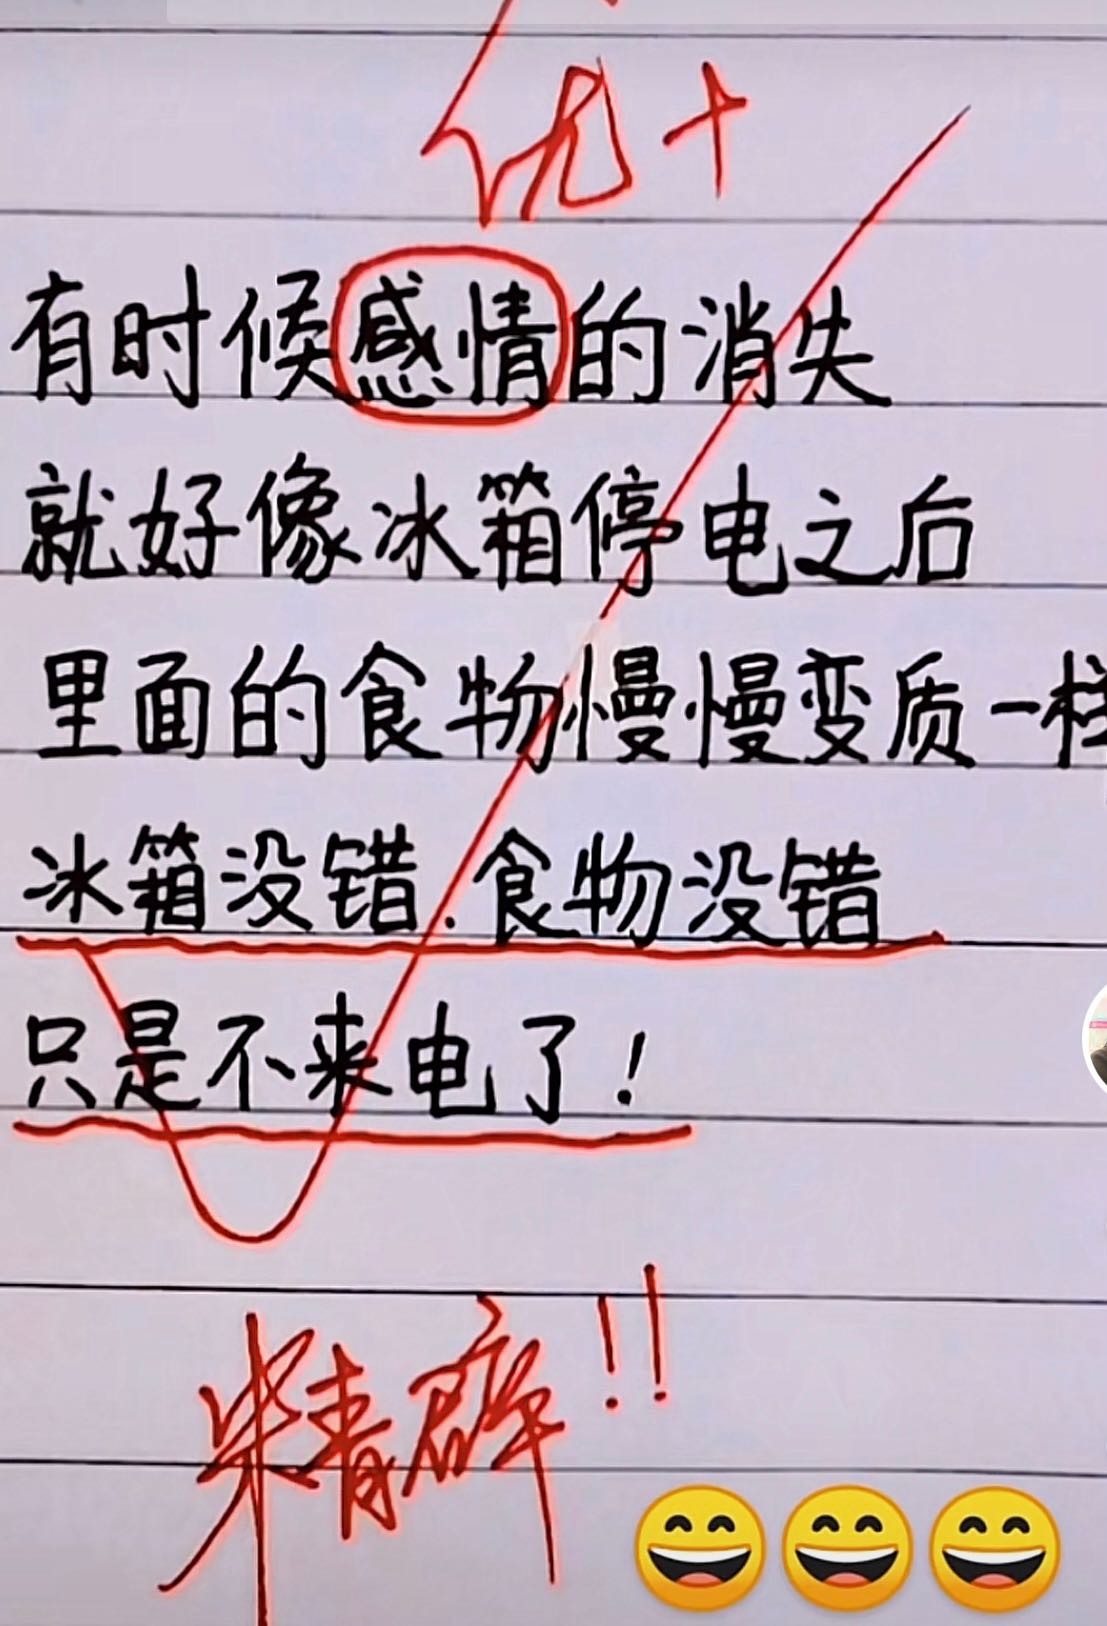 优+
有时候感情的消失
就好像冰箱停电之后
里面的食物慢慢变质一样
冰箱没错.食物没错
只是不来电了!
精辟!!